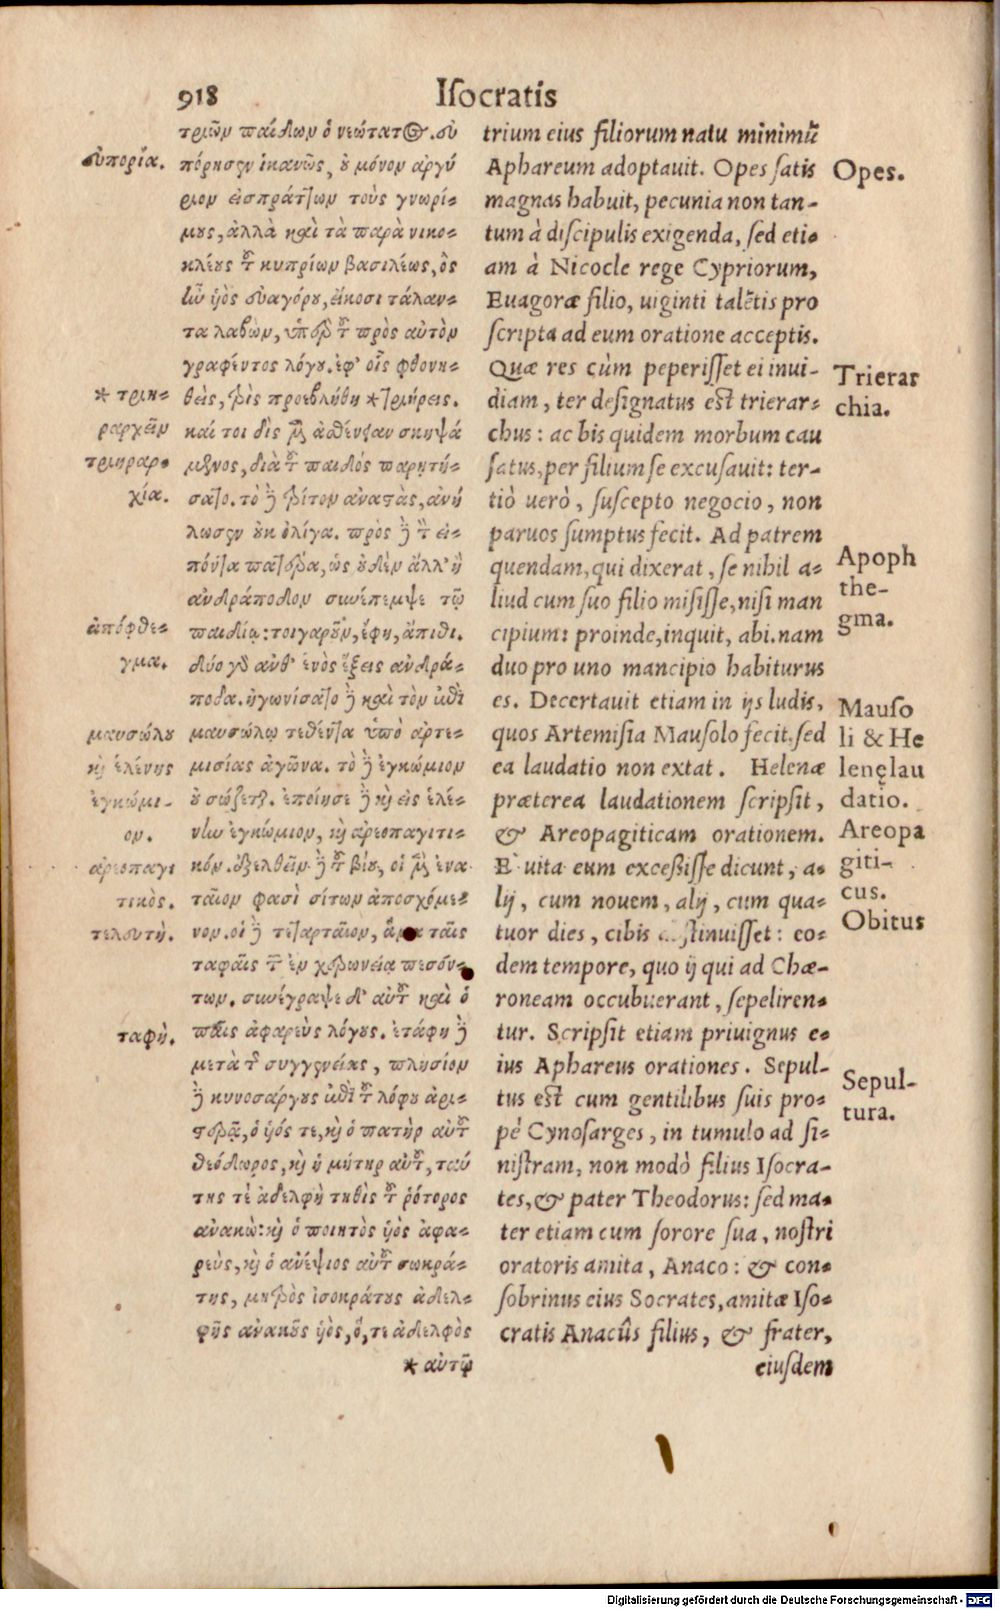 918
Iſocratis
τριῶν παίδων ὁ νεώτατος. εὐ
πόρησεν ἱκανῶς, οὐ μόνον ἀργύ
ριον εἰσπράττων τοὺς γνωρί-
μους, ἀλλὰ καὶ τὰ παρὰ νικο-
κλέους τοῦ κυπρίων βασιλέως, ὃς
ἦν ὑὸς εὐαγόρου, εἴκοσι τάλαν-
τα λαβὼν, ὑπὲρ τοῦ πρὸς αὐτὸν
γραφέντος λόγου. ἐφ' οἷς φθονη-
θεὶς, τρὶς προεβλήθη *τριήρεις.
καί τοι δὶς μὲν ἀσθένειαν σκηψά
μενος, διὰ τοῦ παιδὸς παρῃτή-
σατο. τὸ δὲ τρίτον ἀναστὰς, ἀνή
λωσεν οὐκ ὀλίγα. πρὸς δὲ τὸν εἰ-
πόντα πατέρα, ὡς οὐδὲν ἄλλ' ἢ
ἀνδράποδον συνέπεμψε τῷ
παιδίῳ: τοιγαροῦν, ἔφη, ἄπιθι.
δύο γὰρ ἀνθ' ἑνὸς ἕξεις ἀνδρά-
ποδα. ἠγωνίσατο δὲ καὶ τὸν ἐπὶ
μαυσώλῳ τεθέντα ὑπὸ ἀρτε-
μισίας ἀγῶνα. τὸ δὲ ἐγκώμιον
οὐ σώζεται. ἐποίησε δὲ καὶ εἰς ἑλέ-
νην ἐγκώμιον, καὶ ἀρεοπαγιτι-
κόν. ἐξελθεῖν δὲ τοῦ βίου, οἱ μὲν ἐνα
ταῖον φασὶ σίτων ἀποσχόμε-
νον. οἱ δὲ τεταρταῖον, ἅμα ταῖς
ταφαῖς τῶν ἐν χαιρωνείᾳ πεσόν-
των. συνέγραψε δ' αὐτοῦ καὶ ὁ
παῖς ἀφαρεὺς λόγους. ἐτάφη δὲ
μετὰ τῆς συγγενείας, πλησίον
δὲ κυνοσάργους ἐπὶ τοῦ λόφου ἀρι-
στερᾷ, ὁ ὑός τε, καὶ ὁ πατὴρ αὐτοῦ
θεόδωρος, καὶ ἡ μήτηρ αὐτοῦ, ταύ
της τὲ ἀδελφὴ τηθὶς τοῦ ῥήτορος
ἀνακώ: καὶ ὁ ποιητὸς ὑὸς ἀφα-
ρεὺς, καὶ ὁ ἀνέψιος αὐτοῦ σωκρά-
της, μητρὸς ἰσοκράτους ἀδελ-
φῆς ἀνακοῦς ὑὸς, ὅ, τε ἀδελφὸς
*αὐτῷ
εὐπορία.
* τριη-
ραρχεῖν
τριηραρ-
χία.
ἀπόφθε-
γμα.
μαυσώλου
καὶ ἑλένης
ἐγκώμι-
ον.
ἀρεοπαγι
τικὸς.
τελευτή.
ταφή.
trium eius filiorum natu minimũ
Aphareum adoptauit. Opes ſatis
magnas habuit, pecunia non tan-
tum à diſcipulis exigenda, ſed eti-
am à Nicocle rege Cypriorum,
Euagoræ filio, uiginti talẽtis pro
ſcripta ad eum oratione acceptis.
Quæ res cùm peperiſſet ei inui-
diam, ter deſignatus eſt trierar-
chus: ac bis quidem morbum cau
ſatus, per filium ſe excuſauit: ter-
tiò uerò, ſuſcepto negocio, non
paruos ſumptus fecit. Ad patrem
quendam, qui dixerat, ſe nihil a-
liud cum ſuo filio miſiſſe, niſi man
cipium: proinde, inquit, abi. nam
duo pro uno mancipio habiturus
es. Decertauit etiam in ijs ludis,
quos Artemiſia Mauſolo fecit. ſed
ea laudatio non extat. Helenæ
præterea laudationem ſcripſit,
& Areopagiticam orationem.
E uita eum exceſſiſſe dicunt, a-
lij, cum nouem, alij, cum qua-
tuor dies, cibis abſtinuiſſet: eo-
dem tempore, quo ij qui ad Chæ-
roneam occubuerant, ſepeliren-
tur. Scripſit etiam priuignus e-
ius Aphareus orationes. Sepul-
tus eſt cum gentilibus ſuis pro-
pè Cynoſarges, in tumulo ad ſi-
niſtram, non modò filius Iſocra-
tes, & pater Theodorus: ſed ma-
ter etiam cum ſorore ſua, noſtri
oratoris amita, Anaco: & con-
ſobrinus eius Socrates, amitæ Iſo-
cratis Anacûs filius, & frater,
eiuſdem
Opes.
Trierar
chia.
Apoph
the-
gma.
Mauſo
li & He
lenę lau
datio.
Areopa
giti-
cus.
Obitus
Sepul-
tura.
Digitalisierung gefördert durch die Deutsche Forschungsgemeinschaft - DFG